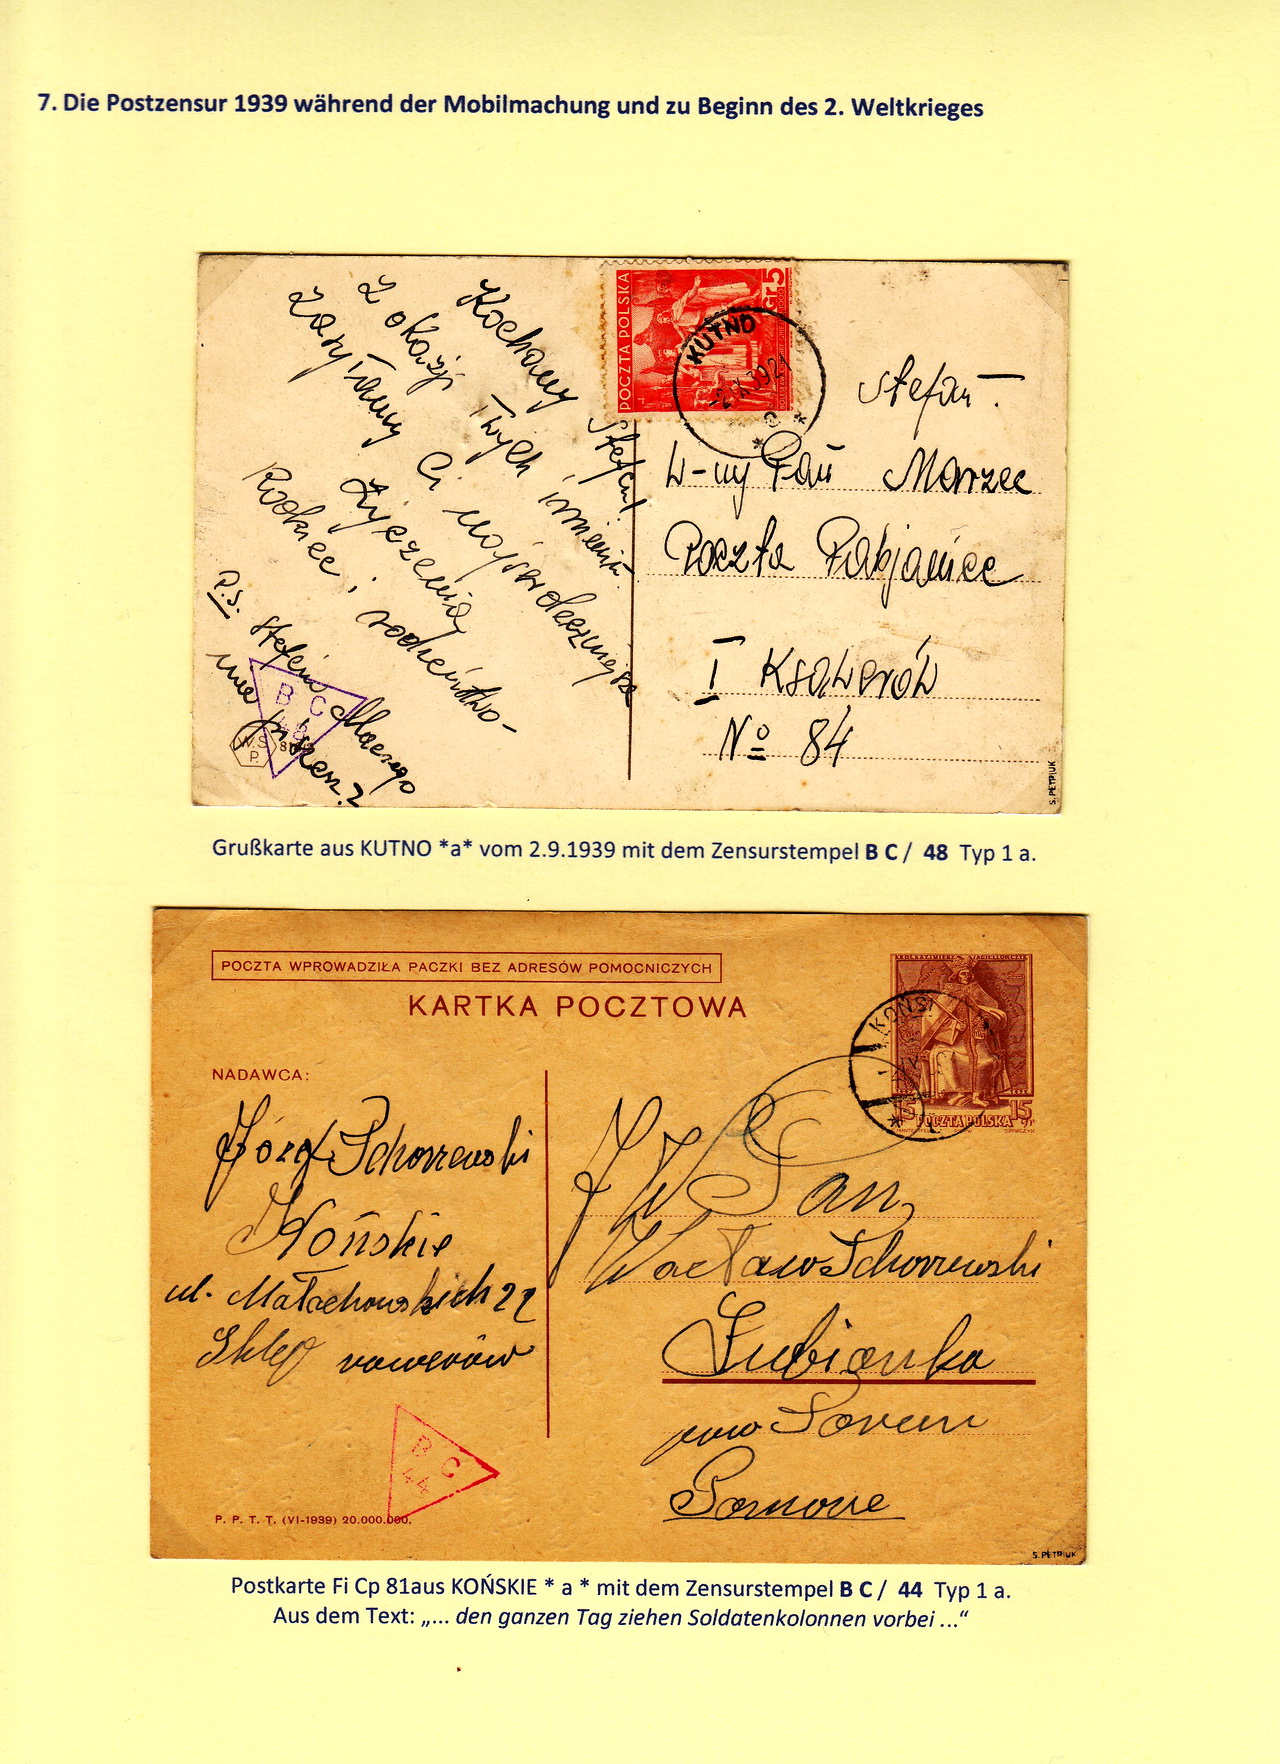 7. Die Postzensur 1939 während der Mobilmachung und zu Beginn des 2. Weltkrieges
Kochany Stefciu!
Z okazji Twych imienin
zasyłamy Ci najserdeczniejsze
życzenia
Rodzice i rodzeństwo-
P.S. Stefciu dlaczego
nie piszesz?
B C
48
W.S.
P.
POCZTA POLSKA
5
Gr
KUTNO
-2.IX.39 21
Stefan.
W-ny Pan Marzec
Poczta Pabjanice
I Ksawerów
No 84
S. PETRIUK
Grußkarte aus KUTNO *a* vom 2.9.1939 mit dem Zensurstempel B C / 48 Typ 1 a.
POCZTA WPROWADZIŁA PACZKI BEZ ADRESÓW POMOCNICZYCH
KARTKA POCZTOWA
KOŃSKI
15 POCZTA POLSKA 15
gr
NADAWCA:
Józef Schorzewski
Końskie
ul. Małachowskich 22
Sklep rowerów
J W Pan
Wacław Schorzewski
Łubianka
pow
Pomorze
B C
44
P. P. T. T. (VI-1939) 20.000.000.
S. PETRIUK
Postkarte Fi Cp 81aus KOŃSKIE * a * mit dem Zensurstempel B C / 44 Typ 1 a.
Aus dem Text: „... den ganzen Tag ziehen Soldatenkolonnen vorbei ...“